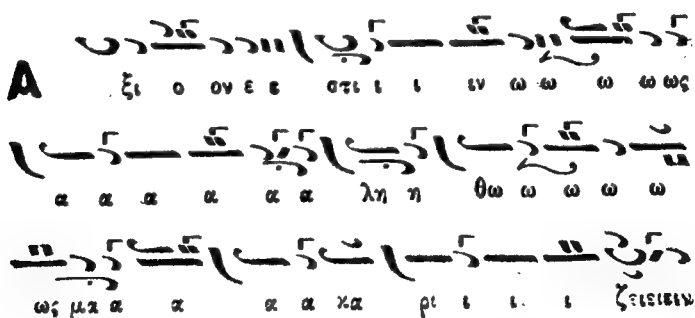 Α ξι ο ον ε ε στι ι ι ιν ω ω ω ω ως
α α α α α α λη η θω ω ω ω ω
ως μα α α α α κα ρι ι ι ι